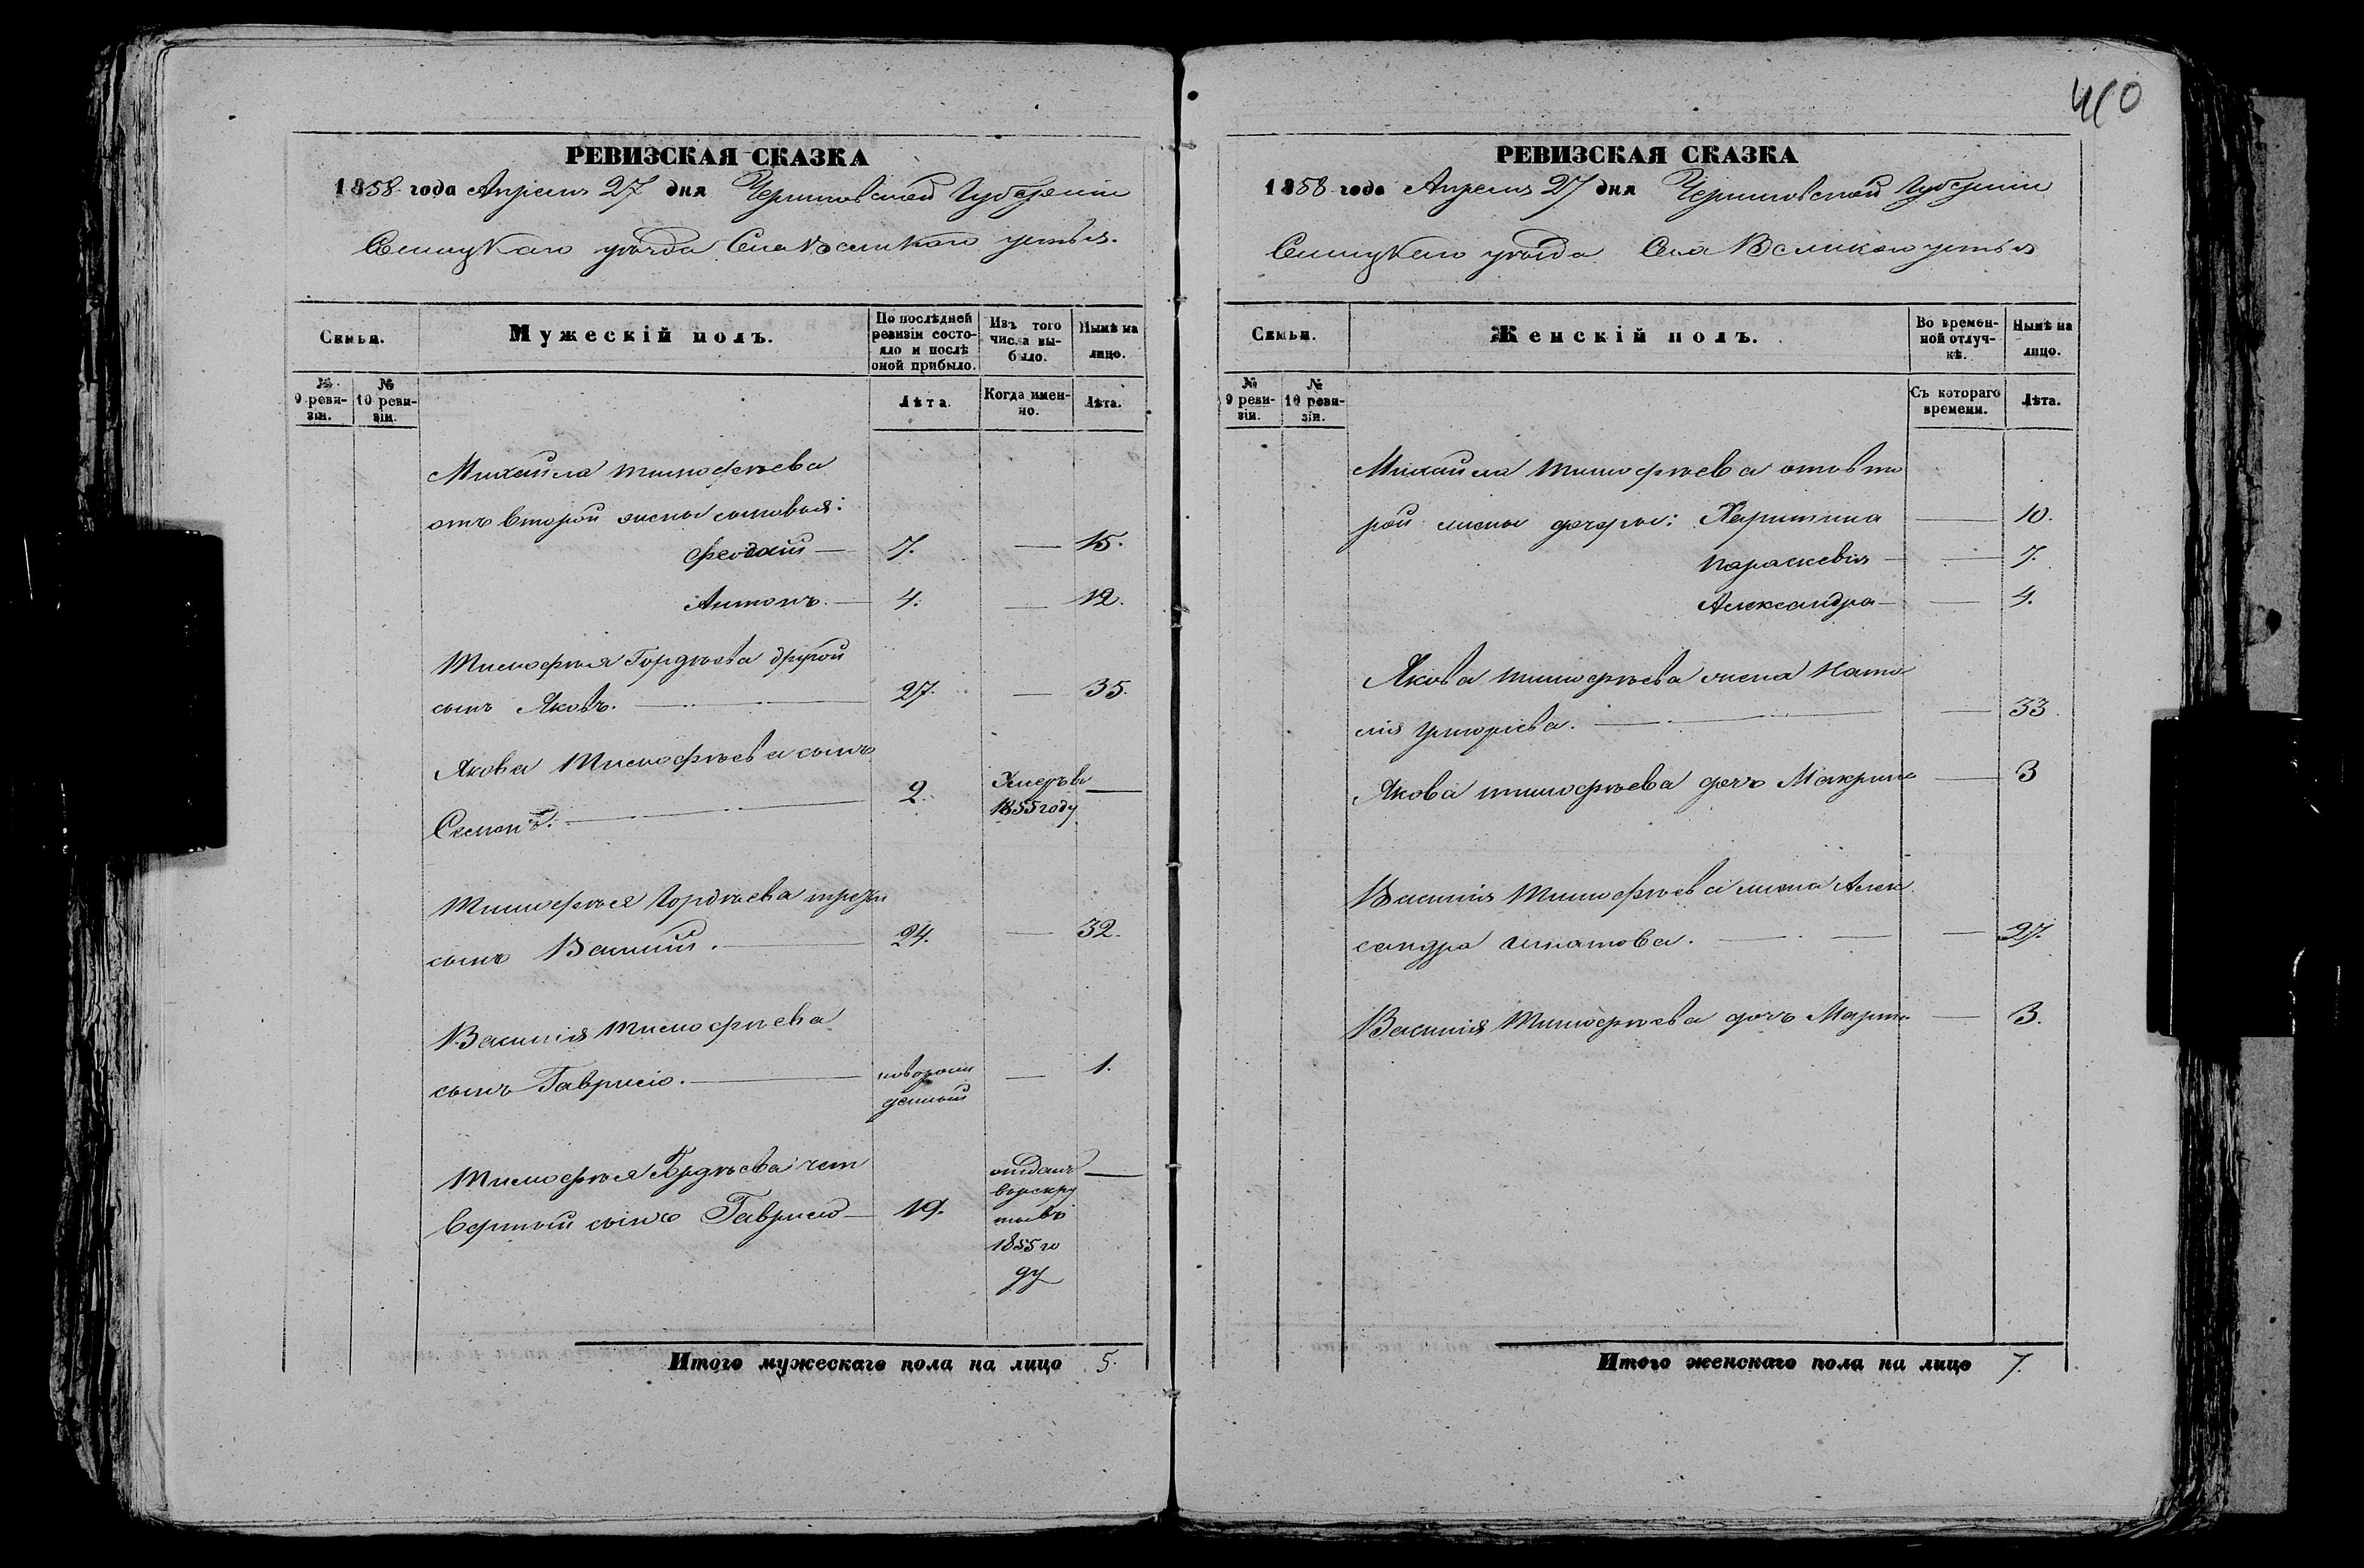 410
РЕВИЗСКАЯ СКАЗКА
1858 года Апреля 27 дня Черниговской Губерніи
Сосницкаго уѣзда Села Великаго устья.
Семьи.
Мужескій полъ.
По послѣдней ревизіи состояло и послѣ оной прибыло.
Изъ того числа выбыло.
Нынѣ на лицо.
№ 9 ревизіи.
№ 10 ревизіи.
Лѣта.
Когда именно.
Лѣта.
Михайла Тимофѣева
отъ второй жены сыновья:
Феодосій — 7. — 15.
Антонъ. — 4. — 12.
Тимофѣя Гордѣева другой
сынъ Яковъ. — 27. — 35.
Якова Тимофѣева сынъ
Семенъ. — 2. Умеръ въ 1855 году —
Тимофѣя Гордѣева третій
сынъ Василій. — 24. — 32.
Василія Тимофѣева
сынъ Гаврило. — новорожденный — 1.
Тимофѣя Гордѣева чет
вертый сынъ Гаврило — 19. отданъ —
въ рекру
ты въ
1855 го
ду
Итого мужескаго пола на лицо 5.
РЕВИЗСКАЯ СКАЗКА
1858 года Апреля 27 дня Черниговской Губерніи
Сосницкаго уѣзда Села Великаго устья
Семьи.
Женскій полъ.
Во временной отлучкѣ.
Нынѣ на лицо.
№ 9 ревизіи.
№ 10 ревизіи.
Съ котораго времени.
Лѣта.
Михайла Тимофѣева отъ вто
рой жены дочери: Харитина — 10.
Параскевія — — 7.
Александра — — 4.
Якова Тимофѣева жена Ната
лія Григоріева. — — 33.
Якова Тимофѣева дочь Макрина — 3
Василія Тимофѣева жена Алек
сандра Игнатова. — — 27.
Василія Тимофѣева дочь Марфа — 3.
Итого женскаго пола на лицо 7.